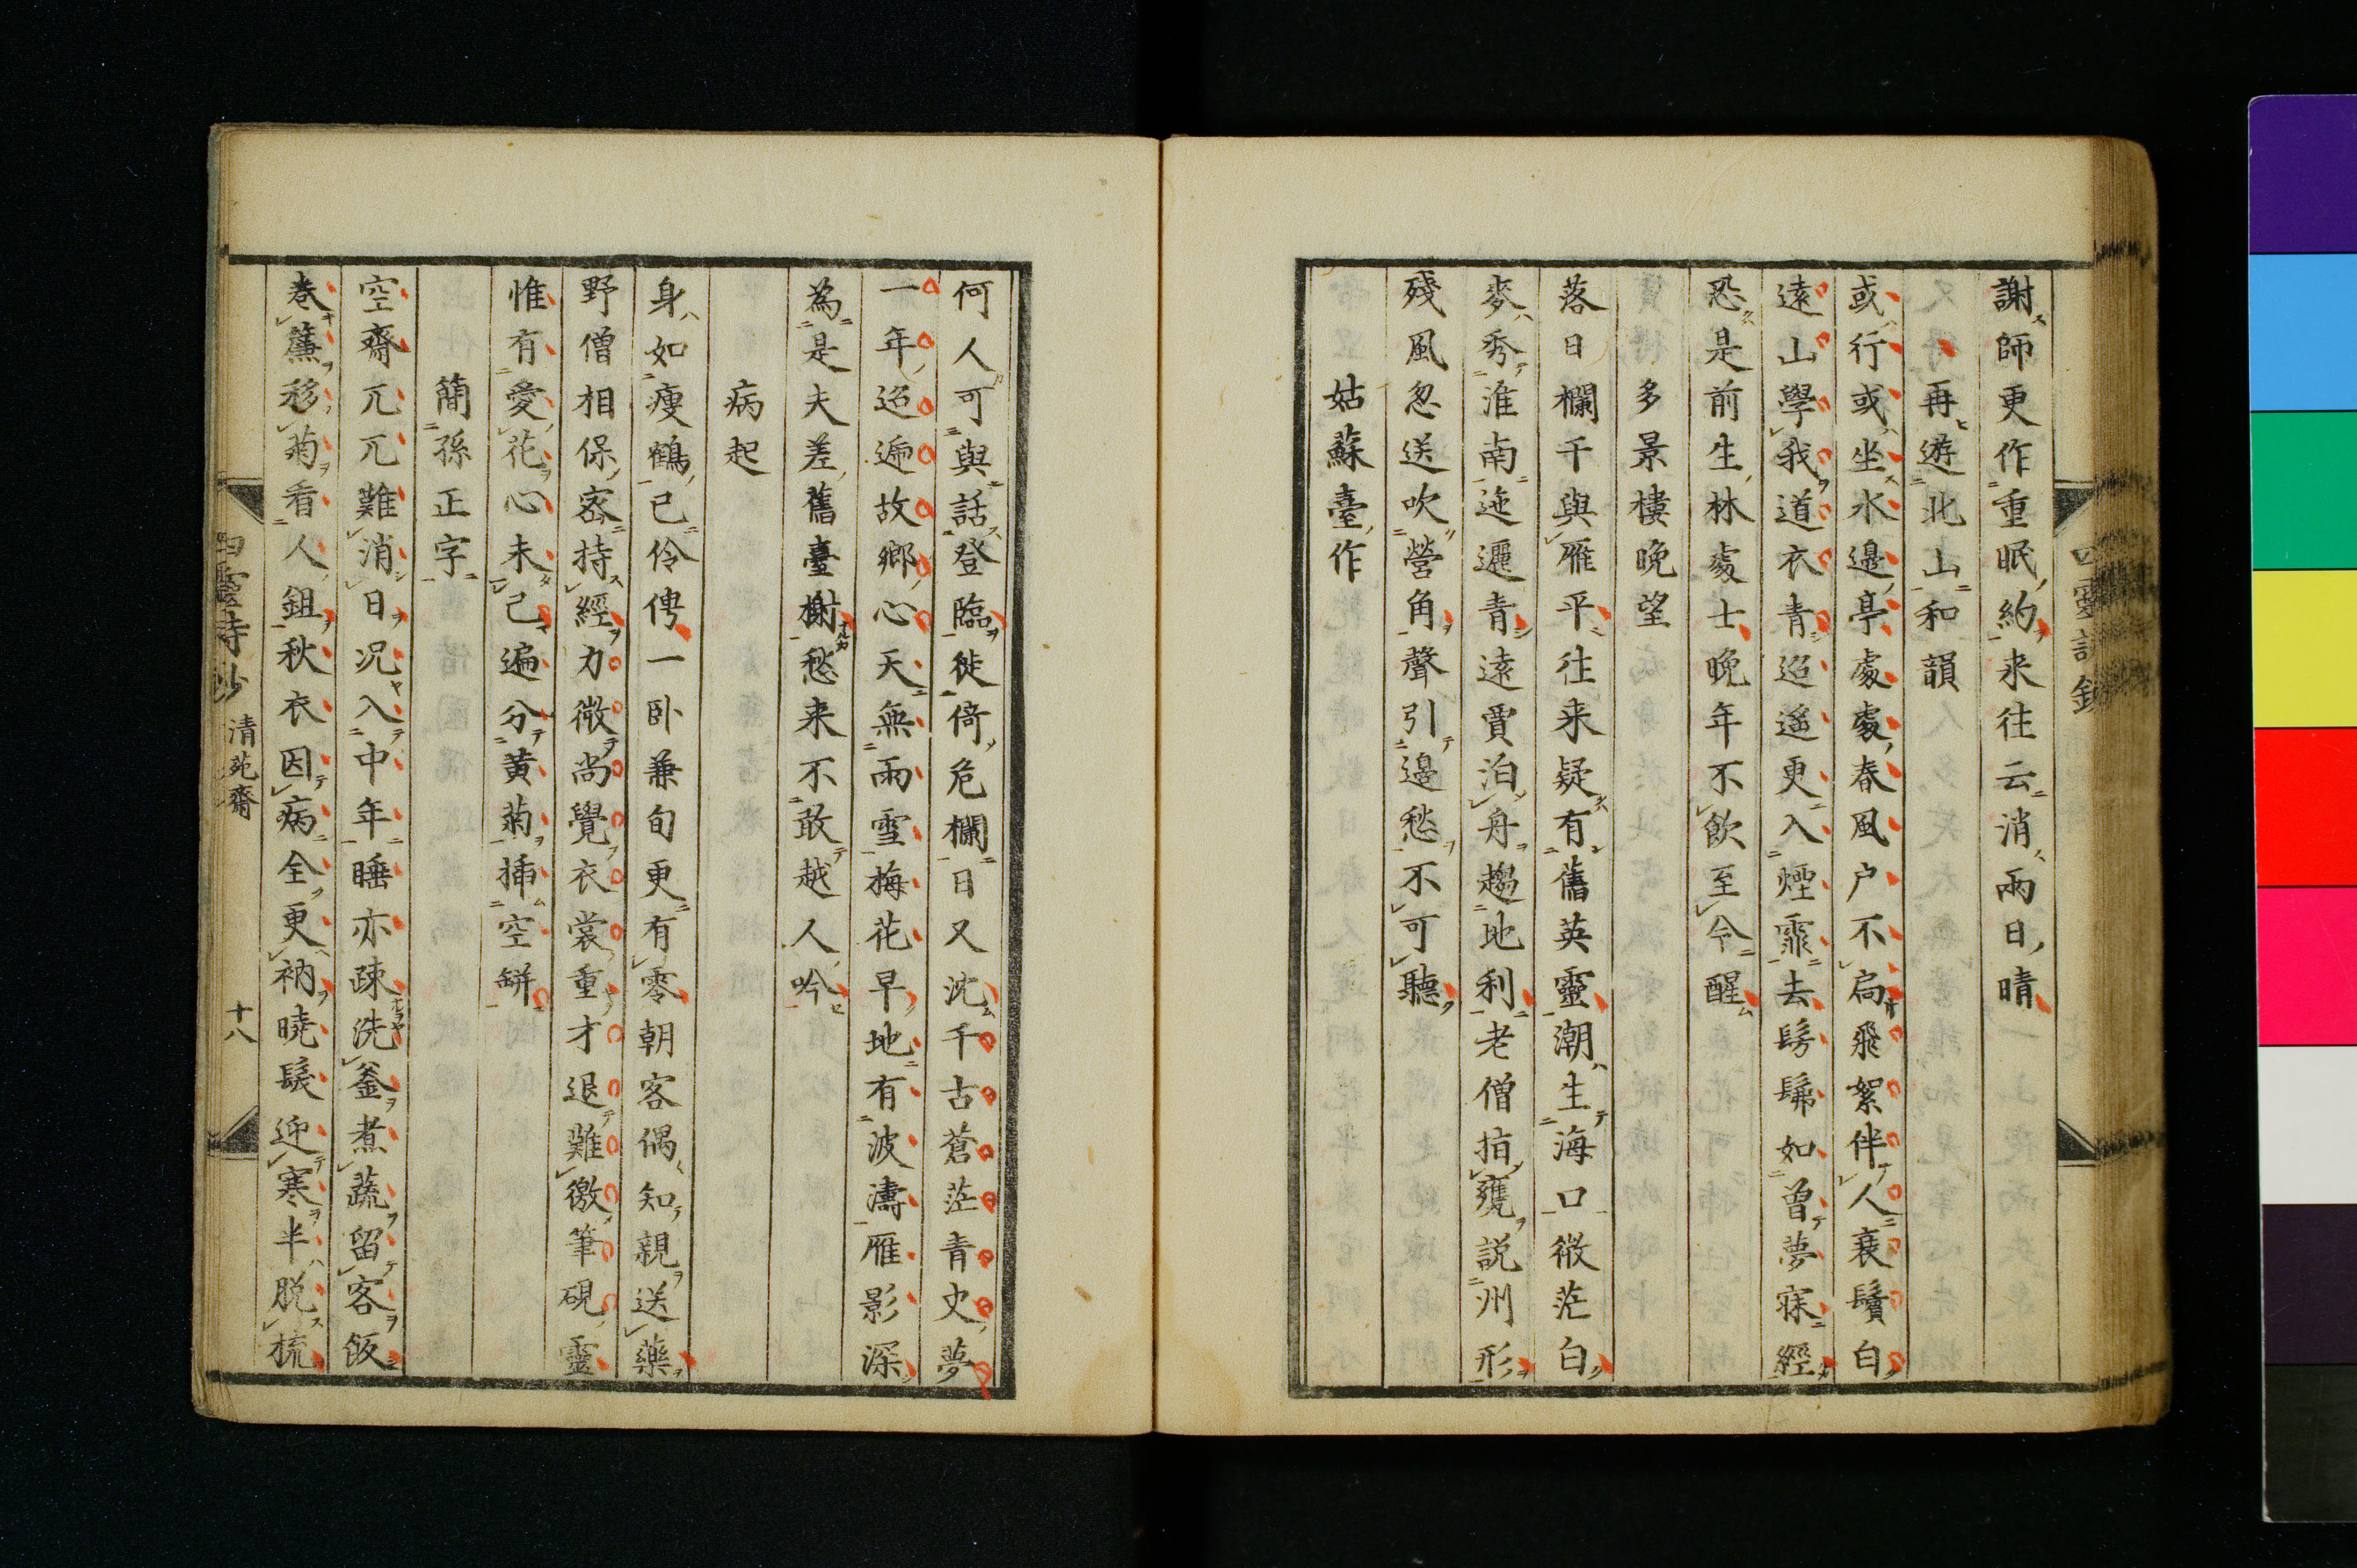 謝師更作重眠約来往云消雨日晴
再遊北山和韻
或行或坐水邊亭處處春風户不扃飛絮伴人衰鬢白
遠山學我道衣青迢遥更入煙霏去髣髴如曽夢寐經
恐是前生林處士晚年不飲至今醒
多景樓晚望
落日欄干與雁平往来疑有舊英靈潮生海口微茫白
麥秀淮南迤邐青遠賈泊舟趨地利老僧指甕説州形
殘風忽送吹營角聲引邊愁不可聽
姑蘇臺作
四靈詩鈔
何人可與話登臨徙倚危欄日又沈千古蒼茫青史夢
一年迢遞故鄉心天無雨雪梅花早地有波濤雁影深
為是夫差舊臺榭愁来不敢越人吟
病起
身如瘦鶴已伶俜一卧兼旬更有零朝客偶知親送藥
野僧相保密持經力微尚覺衣裳重才退難徼筆硯靈
惟有愛花心未已遍分黄菊挿空缾
簡孫正字
空齋兀兀難消日况入中年睡亦疎洗釜煮蔬留客飯
巻簾移菊看人鉏秋衣因病全更衲曉髮迎寒半脱梳
四靈詩鈔 清苑齋 十八